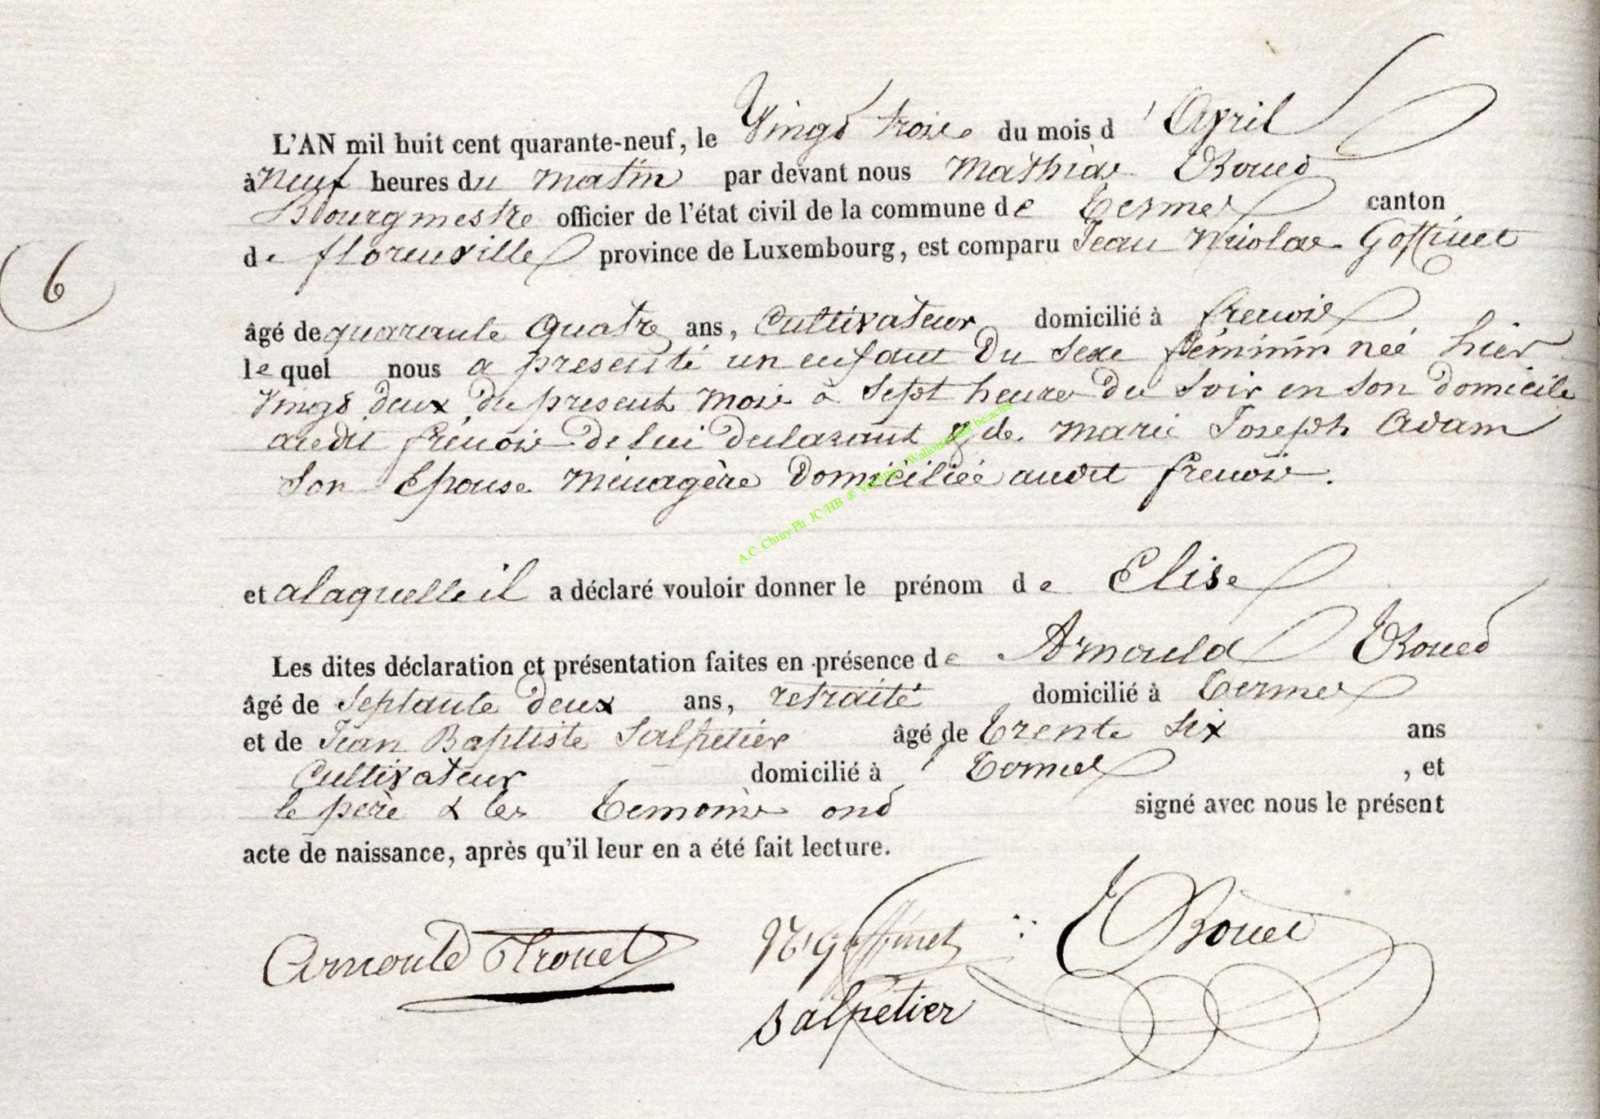 L'AN mil huit cent quarante-neuf, le Vingt trois du mois d'Avril
à Neuf heures du matin par devant nous Mathias
Bourgmestre officier de l'état civil de la commune de Termes canton
de florenville province de Luxembourg, est comparu Jean Nicolas Goffinet
6
âgé de quarante quatre ans, Cultivateur domicilié à frenois
le quel nous a presenté un enfant du sexe féminin née hier
Vingt deux du present mois à Sept heures du Soir en son domicile
audit frénois de lui déclarant & de marie Joseph Adam
son Epouse ménagère domiciliée audit frenois.
A.C. Chiny-Ph. JC/HB &
et a laquelle il a déclaré vouloir donner le prénom de Elise
Les dites déclaration et présentation faites en présence de Arnould
âgé de septante deux ans, retraité domicilié à Termes
et de Jean Baptiste Salpetier âgé de trente six ans
Cultivateur domicilié à Termes , et
le père & les temoins ont signé avec nous le présent
acte de naissance, après qu'il leur en a été fait lecture.
Arnould N Goffinet
Salpétier